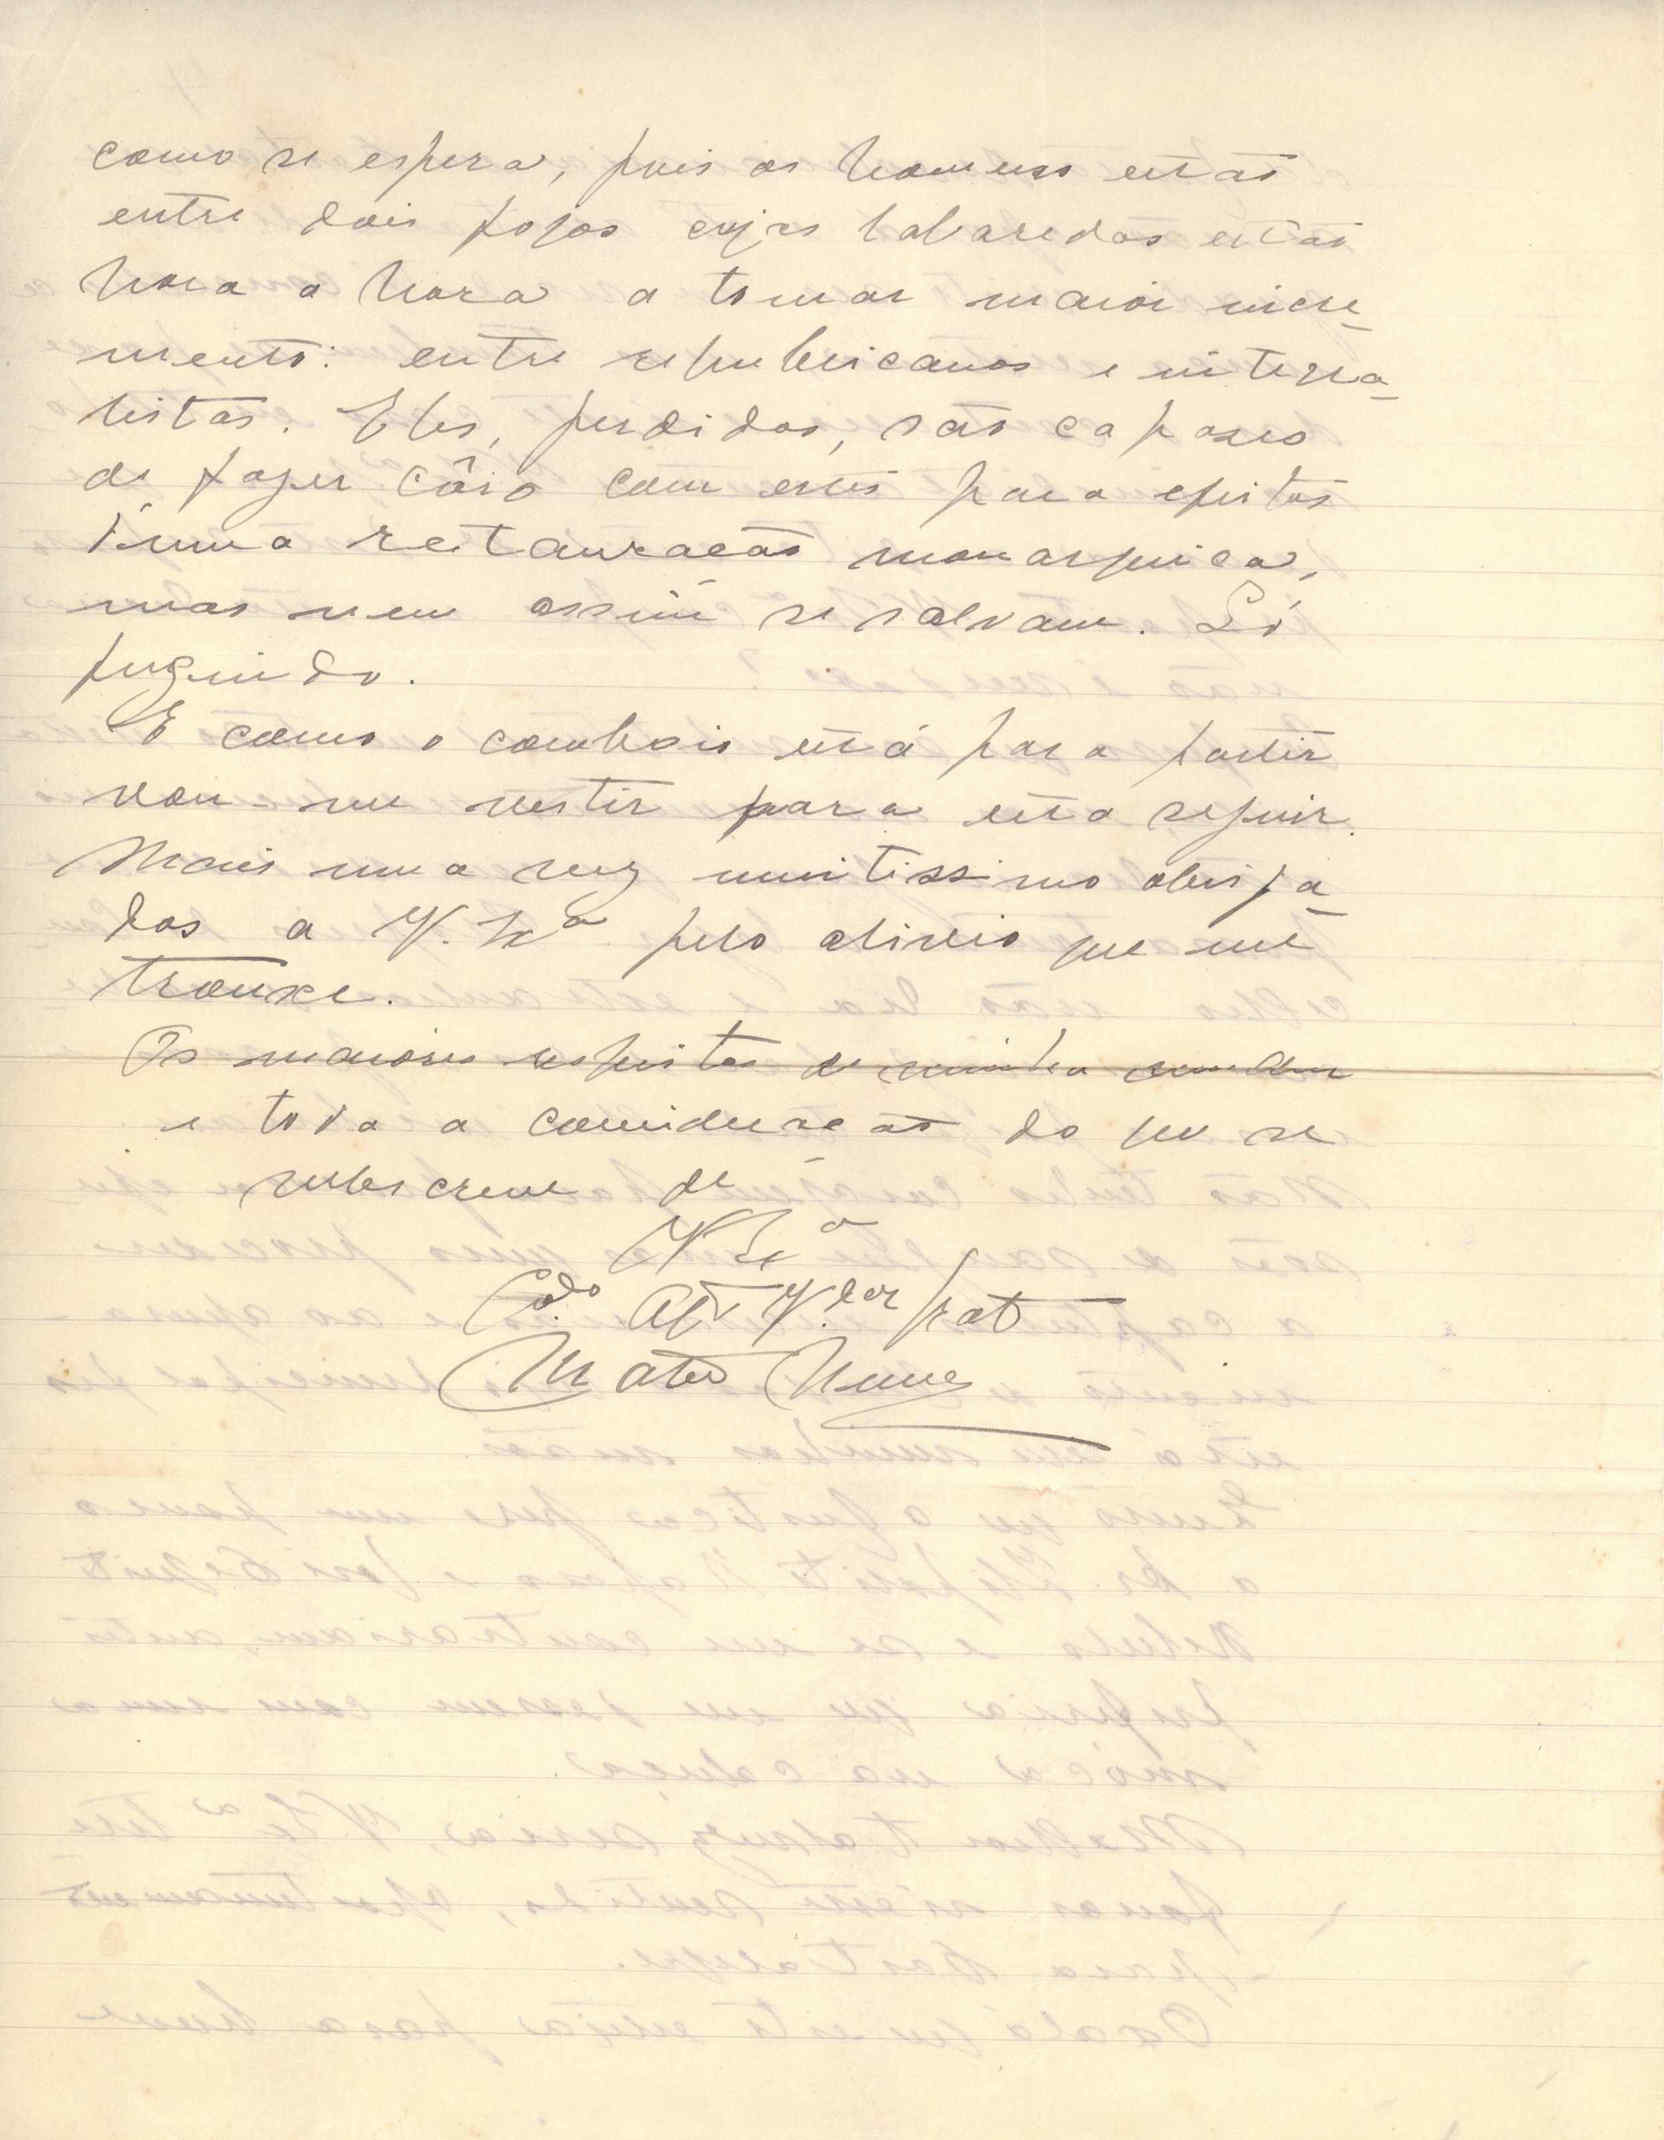 como se espera, pois os homens estão
entre dois fogos cujas labaredas estão
hora a hora a tomar maior incre-
mento: entre republicanos e intera-
listas. Eles, perdidos, são capazes
de fazer côro com estes para efeitos
d'uma restauração monarquica,
mas nem assim se salvam. Só
fugindo.
E como o comboio está para partir
vou-me vestir para esta seguir.
Mais uma vez muitissimo obriga-
dos a V. Exª pelo alivio que me
trouxe.
Os maiores respeitos de minha
e toda a consideração do que se
subscreve de
V Exª
Cdo. Att V.dor
Matos Nunes